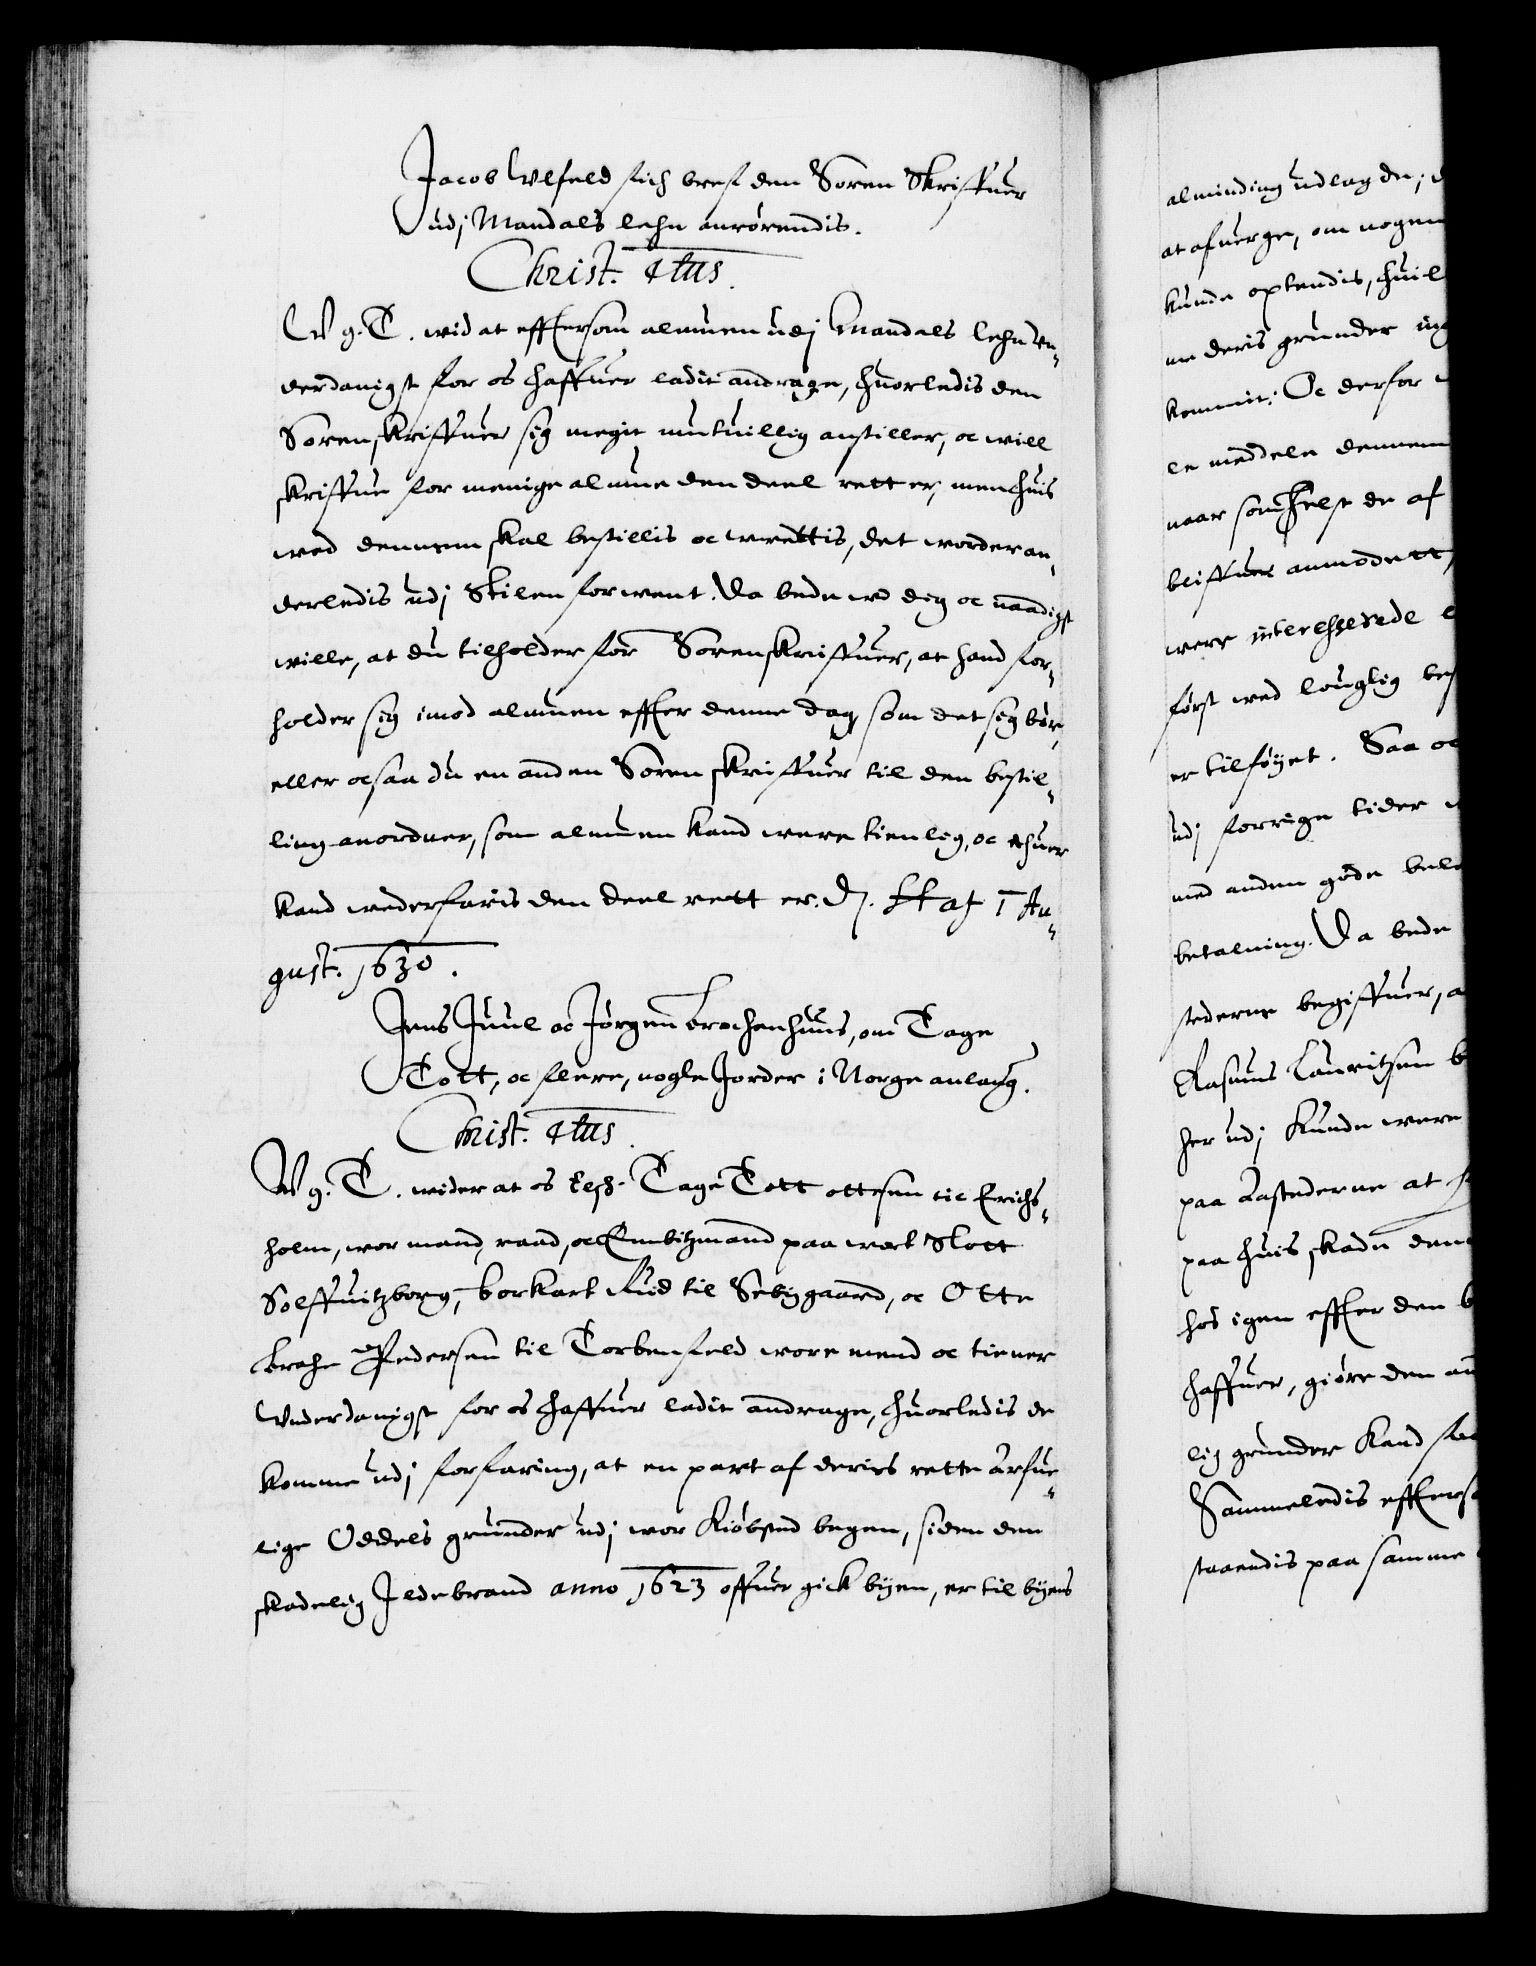 Jacob Ulfeld fich bref den Soren Skriffuer
udj Mandals lehn anrørendis.
Christ. 4tus.
W. g. T. wid at efftersom almuen udj Mandals lehn Un„
derdanigst for os haffuer ladit andrage, huorledis den
Sorenskriffuer sig megit mutuillig anstiller, oc will
skriffue for menige almue den deel rett er, men huis
wed dennem skal bestillis oc wrettis, det worder an„
derledis udj Stilen forwent. Da bede wi dig oc naadigst
wille, at du tilholder for Sorenskriffuer, at hand for„
holder sig imod almuen effter denne dag, som det sig bør,
eller ocsaa du en anden Sorenskriffuer til den bestil„
ling anordner, som almuen kand were tienlig, oc ehuer
kand wederfaris den deel rett er. D. Haf 1 Au„
gust. 1630.
Jens Juul oc Jørgen Brochenhuus, om Tage
Tott, oc flere, nogle Jorder i Norge anlang.
Christ. 4tus.
W g. T. wider at os Elsk. Tage Tott ottesen til Erichs„
holm, wor mand, raad, oc Embitzmand paa wort Slott
Sølffuitzborg, Borkart Rud til Sebygaard, oc Otte
Brahe Pedersen til Torbenfeld wore mend oc tiener
Underdanigst for os haffuer ladit andrage, huorledis de
komme udj forfaring, at en part af deris rette Arfue„
lige Oddels grunder udj wor Kiøbsted begen, siden den
skadelig Ildebrand anno 1623 offuer gick byen, er til byens
alminding udlag de, d
at afuerge, om nogen
kunde optendis, huil
me deris grunder ing
kommit: Oc derfor
le meddele dennem
naar somhelst de af
bliffuer anmodett,
were interesserede
først wed louglig bes
er tilføyet. Saa oc
udj forrige tider
med anden gode bele
betalning. Da bede
stederne begiffuer, a
Rasmus Lauritzen b
her udj kunde were
paa Aastederne at
paa huis skade den
hos igen effter den b
haffuer, giøre den an
lig grunder kand
Sammeledis effterso
staaendis paa samme